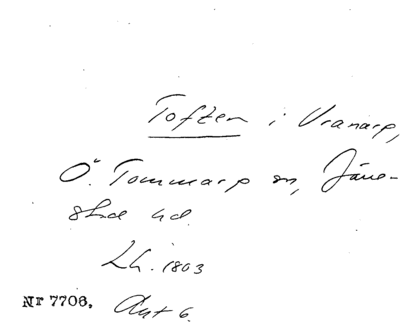 Toften i Vranarp,
Ö. Tommarp sn, Järre-
stad hd.
Lh. 1803
Nr 7706. Akt 6.